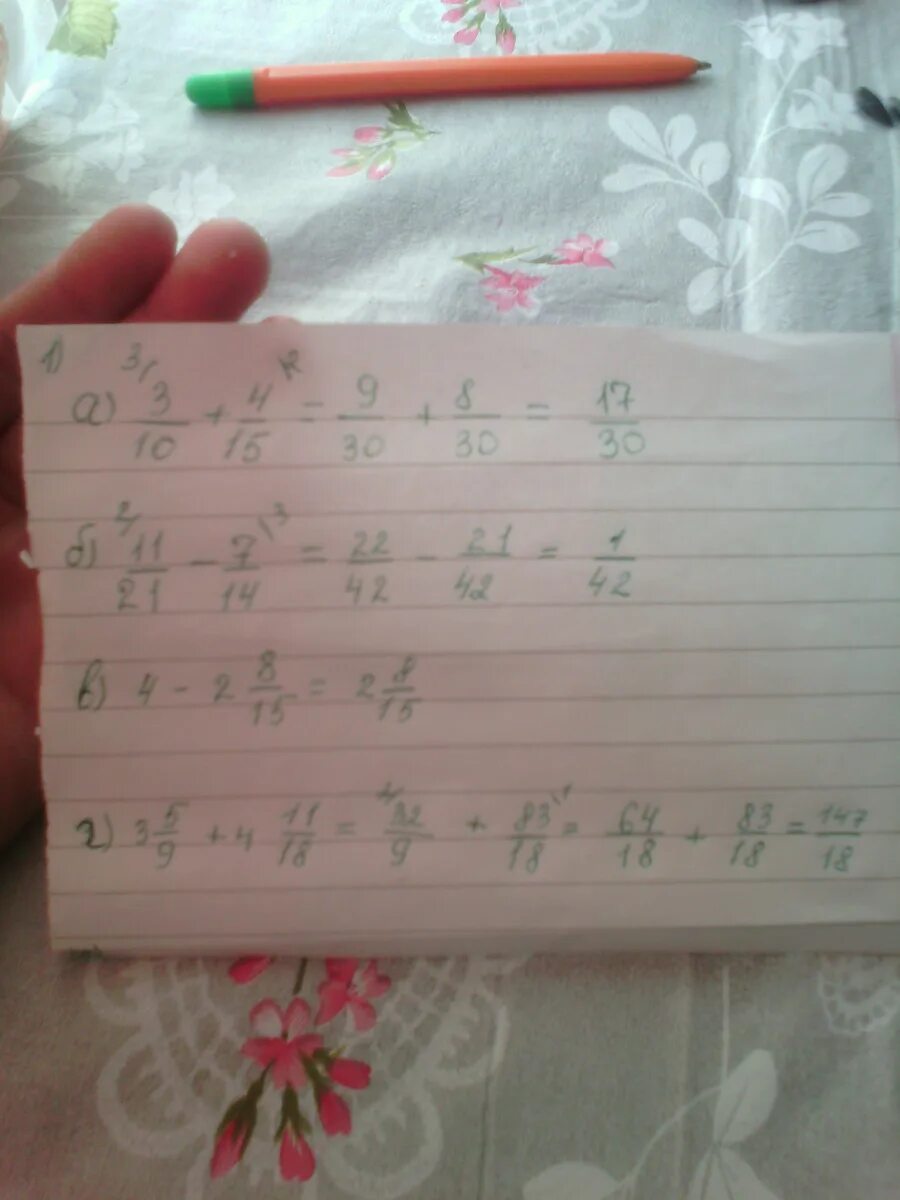 1)
а) 3/ 3/10 + 4/15 \2 = 9/30 + 8/30 = 17/30
б) 2/ 11/21 - 7/14 \3 = 22/42 - 21/42 = 1/42
в) 4 - 2 8/15 = 2 8/15
г) 3 5/9 + 4 11/18 = 32/9 + 83/18 \1 = 64/18 + 83/18 = 147/18